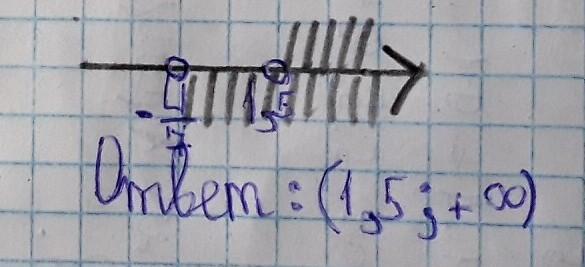 -4/7 1,5
Ответ: (1,5; +∞)